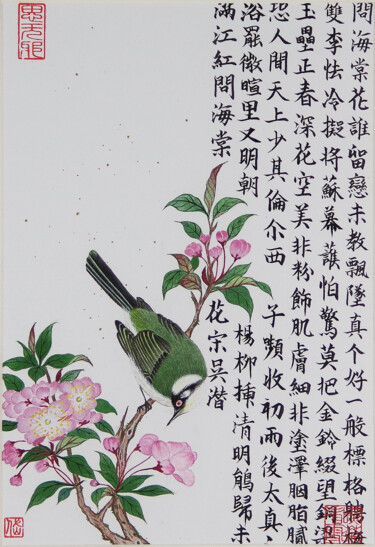 問海棠花誰留戀未教飄墜真个好一般標格聘梅
雙李怯冷擬將蘇幕護怕驚莫把金鈴綴望銅梁
玉壘正春深花空美非粉飾肌膚細非塗澤胭脂膩
恐人間天上少其倫尔西子顰收初雨後太真、
浴罷微暄里又明朝楊柳插清明鵑歸未
滿江紅問海棠花宋吳潛
思无邪